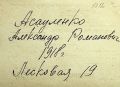 Асауленко
Александр Романович
1918г
Песковая 19